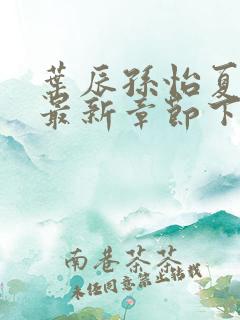 葉辰孫怡夏
最新章節下
南巷茶茶
未经同意禁止转载